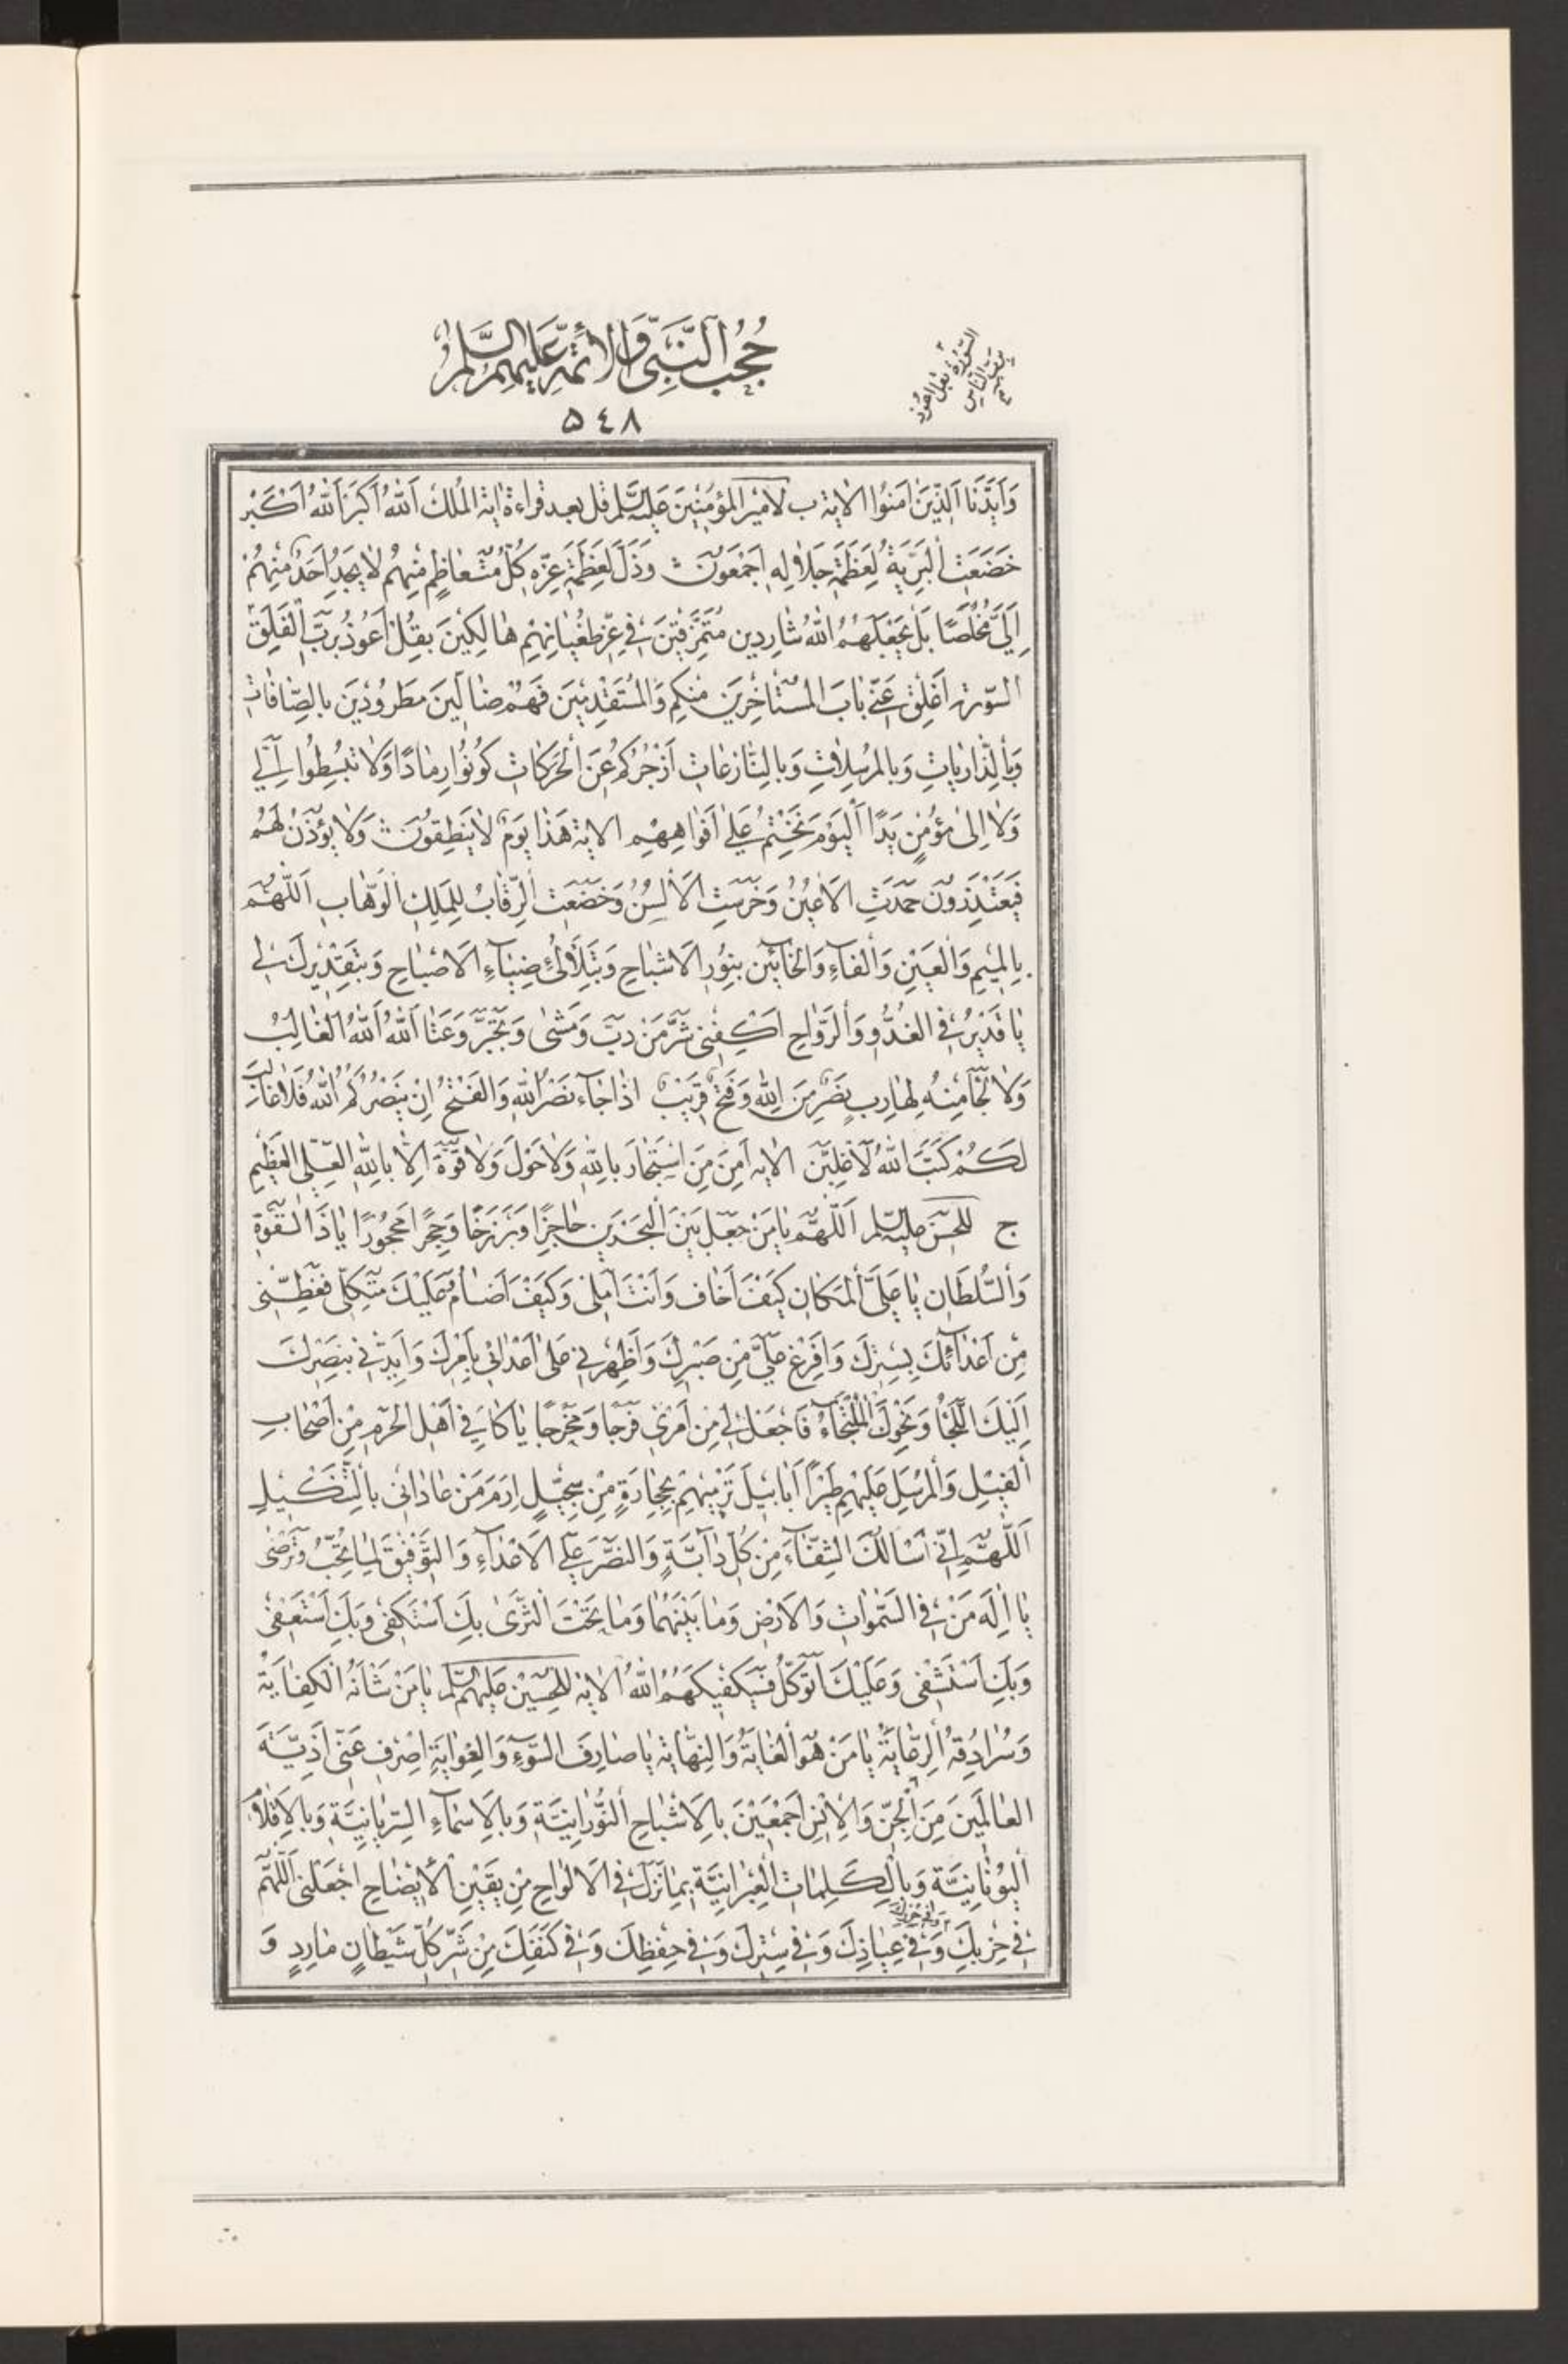 حُجُبُ النَّبِيِّ وَالأَئِمَّةِ عَلَيْهِمُ السَّلَامُ
السّورة بقل اعوذ
بربّ الناس
۵٤٨
وَاَيَّدْنَا الَّذِينَ اٰمَنُوا الاٰية ب لاَمِيْرِ المُؤمِنِينَ عَلَيْهِ السَّلَم قل بعد قراءة اية المُلك اَللهُ اَكْبَرُ اَللهُ اَكْبَرُ
خَضَعَتِ الْبَرِيَّةُ لِعَظَمَةِ جَلالِهِ اَجْمَعُونَ وَذَلَّ لِعَظَمَةِ عِزِّهِ كُلُّ مُتَعَاظِمٍ مِنْهُمْ لا يَجِدُ اَحَدٌ مِنْهُمْ
اِلَيَّ مُخْلَصًا بَلْ يَجْعَلُهُمُ اللهُ شارِدِينَ مُتَمَزِّقِينَ فِي عِزِّ طُغْيَانِهِمْ هالِكِينَ بِقُلْ اَعُوذُ بِرَبِّ الْفَلَقِ
السّورة اَغْلِقْ عَنِّي بابَ الْمُسْتَاخِرِينَ مِنْكُمْ وَالْمُسْتَقْدِمِينَ فَهُمْ ضالِّينَ مَطْرُودِينَ بِالصَّافّاتِ
وَبِالذّارِياتِ وَبِالمُرْسَلاتِ وَبِالنّازِعاتِ اَزْجُرُكُمْ عَنِ الْحَرَكاتِ كُونُوا رِمادًا وَلا تَبْسُطُوا اِلَيَّ
وَلا اِلىٰ مُؤْمِنٍ يَدًا اَلْيَوْمَ نَخْتِمُ عَلىٰ اَفْواهِهِمْ الاية هَذا يَوْمُ لا يَنْطِقُونَ وَلا يُؤْذَنُ لَهُمْ
فَيَعْتَذِرُونَ خَمَدَتِ الاَعْيُنُ وَخَرِسَتِ الاَلْسُنُ وَخَضَعَتِ الرِّقابُ لِلْمَلِكِ الْوَهّابِ اَللّهُمَّ
بِالْمِيمِ وَالْعَيْنِ وَالْفاءِ وَالْحائَيْنِ بِنُورِ الاَشْباحِ وَبِتَلَأْلُئِ ضِياءِ الاَصْباحِ وَبِتَقْدِيرِكَ لِي
يا قَدِيرُ فِي الْغُدُوِّ وَالرَّواحِ اكْفِنِي شَرَّ مَنْ دَبَّ وَمَشىٰ وَتَجَبَّرَ وَعَتا اَللهُ اَللهُ الْغالِبُ
وَلا نَجا مِنْهُ لِهارِبٍ نَصْرٌ مِنَ اللهِ وَفَتْحٌ قَرِيبٌ اِذا جاءَ نَصْرُ اللهِ وَالْفَتْحُ اِنْ يَنْصُرْكُمُ اللهُ فَلا غالِبَ
لَكُمْ كَتَبَ اللهُ لَاَغْلِبَنَّ الاية اَمِنَ مَنِ اسْتَجارَ بِاللهِ وَلا حَوْلَ وَلا قُوَّةَ اِلّا بِاللهِ الْعَلِيِّ الْعَظِيمِ
ج لِلْحَسَنِ عَلَيْهِ السَّلَم اَللّهُمَّ يا مَنْ جَعَلَ بَيْنَ الْبَحْرَيْنِ حاجِزًا وَبَرْزَخًا وَحِجْرًا مَحْجُورًا يا ذَا الْقُوَّةِ
وَالسُّلْطانِ يا عَلِيَّ الْمَكانِ كَيْفَ اَخافُ وَاَنْتَ اَمَلِي وَكَيْفَ اُضامُ وَعَلَيْكَ مُتَّكَلِي فَغَطِّنِي
مِنْ اَعْدائِكَ بِسِتْرِكَ وَاَفْرِغْ عَلَيَّ مِنْ صَبْرِكَ وَاَظْهِرْنِي عَلىٰ اَعْدائِي بِاَمْرِكَ وَاَيِّدْنِي بِنَصْرِكَ
اِلَيْكَ اللَّجَأُ وَنَحْوَكَ الْمُلْتَجاءُ فَاجْعَلْ لِي مِنْ اَمْرِي فَرَجًا وَمَخْرَجًا يا كافِيَ اَهْلِ الْحَرَمِ مِنْ اَصْحابِ
الْفِيلِ وَالْمُرْسِلَ عَلَيْهِمْ طَيْرًا اَبابِيلَ تَرْمِيهِمْ بِحِجارَةٍ مِنْ سِجِّيلٍ اِرْمِ مَنْ عادانِي بِالتَّنْكِيلِ
اَللّهُمَّ اِنِّي اَسْاَلُكَ الشِّفاءَ مِنْ كُلِّ داءٍ وَالنَّصْرَ عَلَى الاَعْداءِ وَالتَّوْفِيقَ لِما تُحِبُّ وَتَرْضىٰ
يا اِلٰهَ مَنْ فِي السَّمٰواتِ وَالاَرْضِ وَما بَيْنَهُما وَما تَحْتَ الثَّرىٰ بِكَ اَسْتَكْفِي وَبِكَ اَسْتَعْفِي
وَبِكَ اَسْتَشْفِي وَعَلَيْكَ اَتَوَكَّلُ فَسَيَكْفِيكَهُمُ اللهُ الاية لِلْحُسَيْنِ عَلَيْهِ السَّلَم يا مَنْ شَاْنُهُ الْكِفايَةُ
وَسُرادِقُهُ الرِّعايَةُ يا مَنْ هُوَ الْغايَةُ وَالنِّهايَةُ يا صارِفَ السُّوءِ وَالْغِوايَةِ اِصْرِفْ عَنِّي اَذِيَّةَ
الْعالَمِينَ مِنَ الْجِنِّ وَالاِنْسِ اَجْمَعِينَ بِالاَشْباحِ النُّورانِيَّةِ وَبِالاَسْماءِ السِّرْيانِيَّةِ وَبِالاَقْلامِ
الْيُونانِيَّةِ وَبِالْكَلِماتِ الْعِبْرانِيَّةِ بِما نَزَلَ فِي الاَلْواحِ مِنْ يَقِينِ الاِيضاحِ اجْعَلْنِي اَللّهُمَّ
فِي حِزْبِكَ وَفِي حِرْزِكَ وَفِي عِياذِكَ وَفِي سِتْرِكَ وَفِي حِفْظِكَ وَفِي كَنَفِكَ مِنْ شَرِّ كُلِّ شَيْطانٍ مارِدٍ وَ